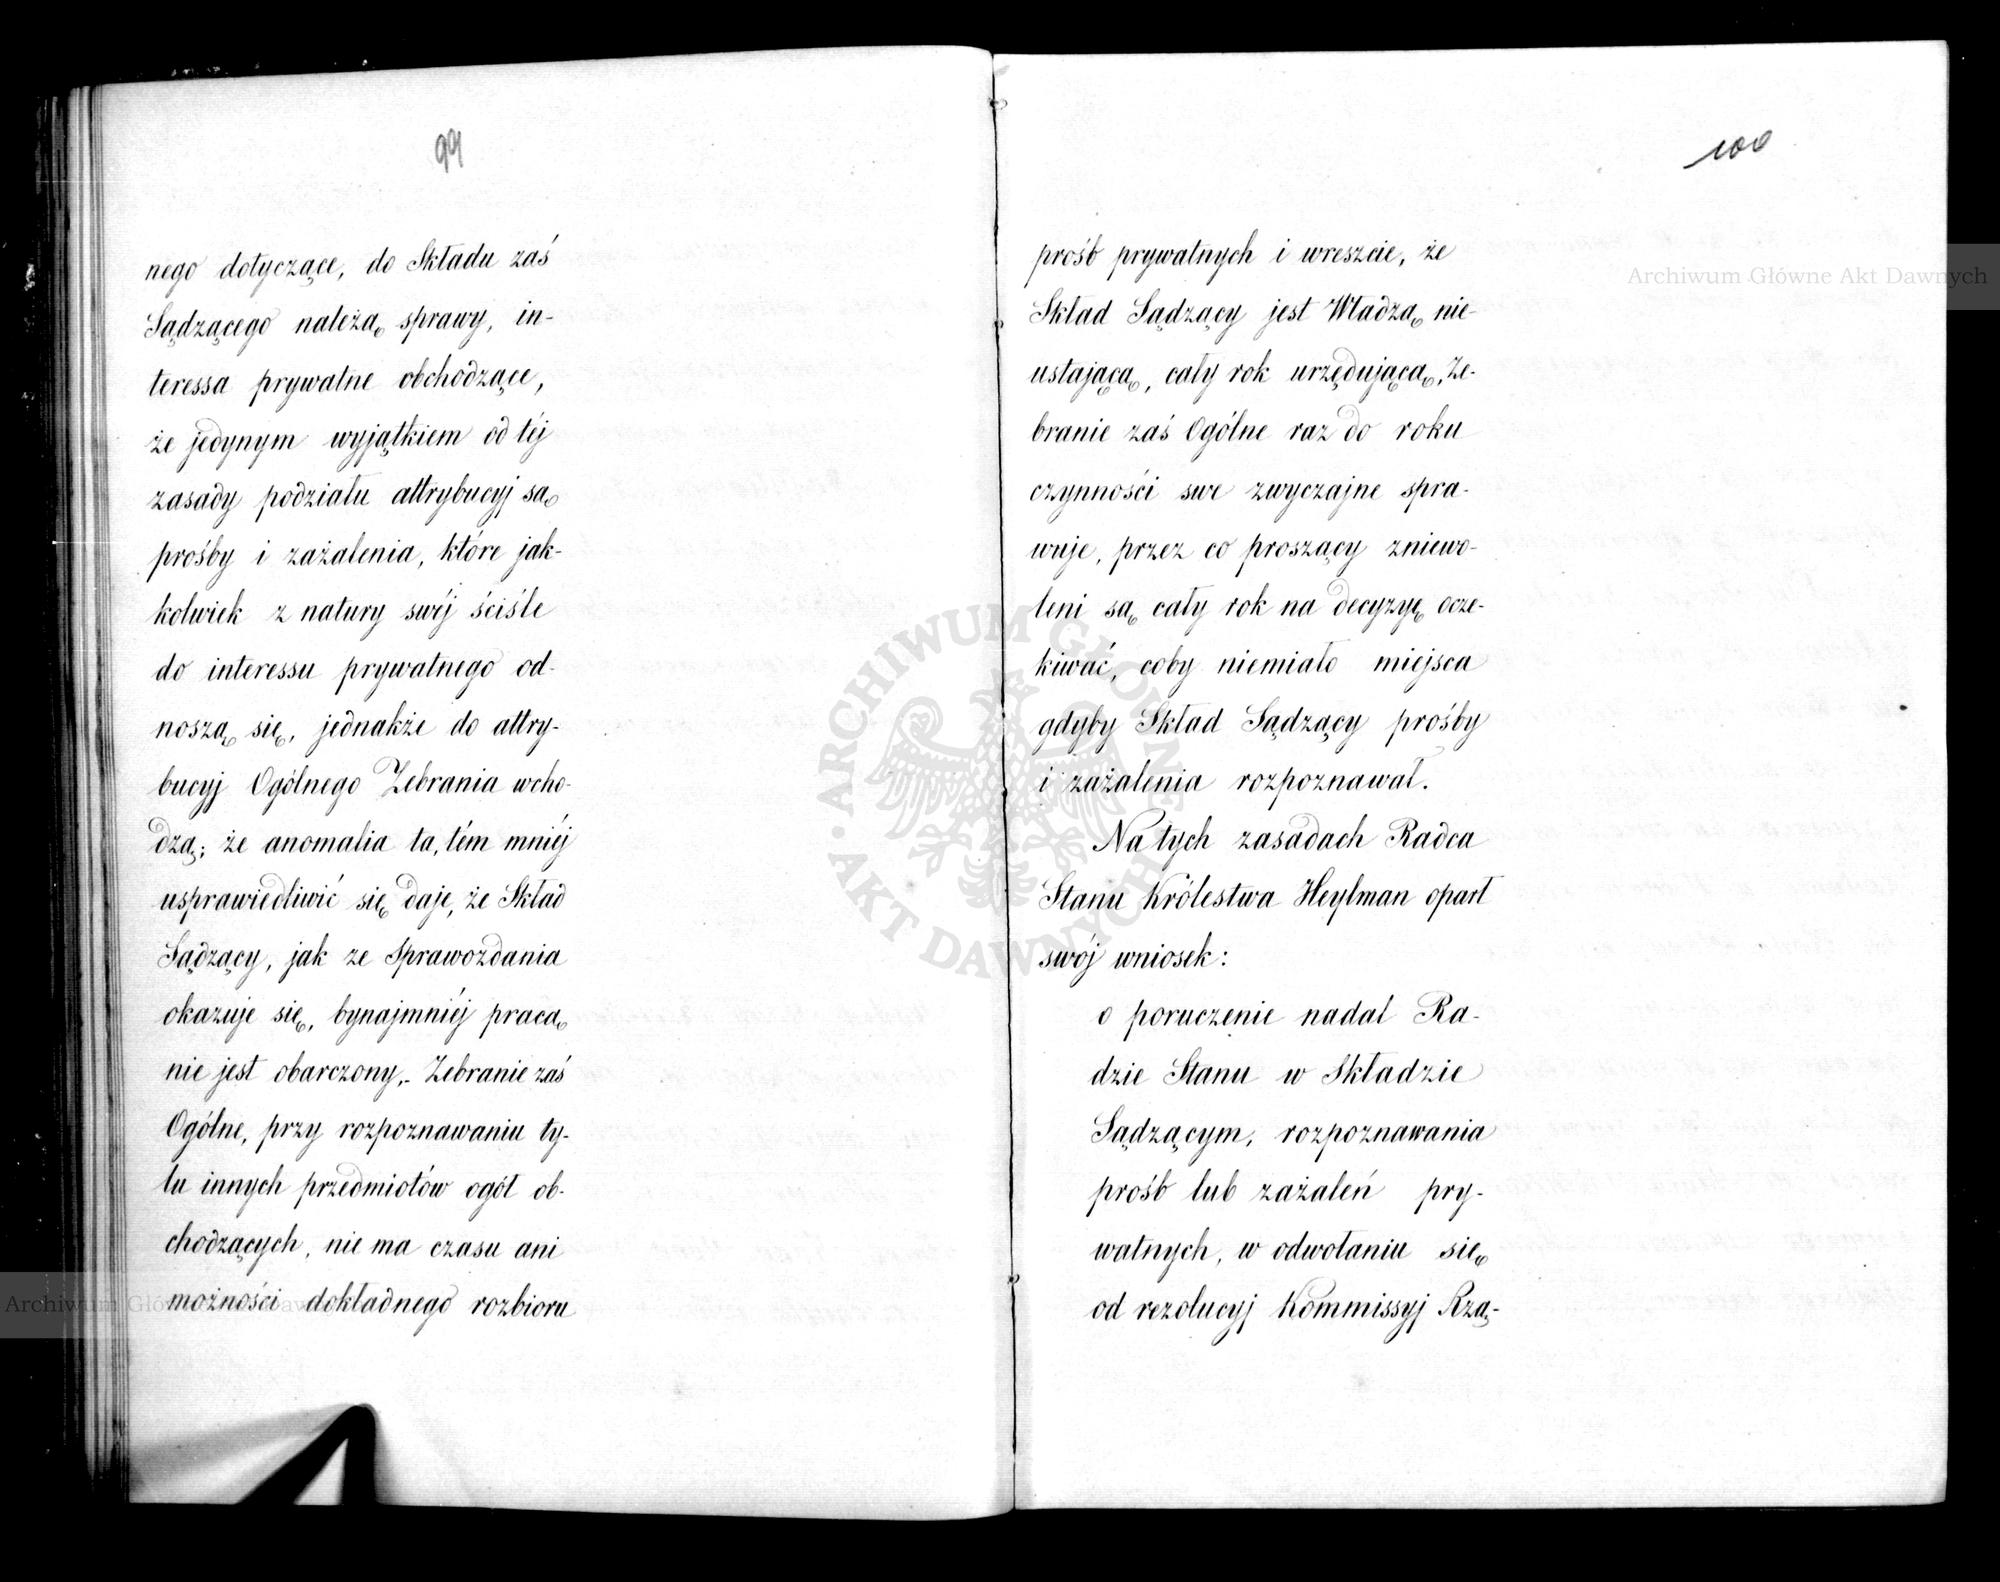 99
nego dotyczące, do Składu zaś
Sądzącego należą sprawy, in-
teressa prywatne obchodzące,
że jedynym wyjątkiem od téj
zasady podziału attrybucyj są
prośby i zażalenia, które jak-
kolwiek z natury swéj ściśle
do interessu prywatnego od-
noszą się, jednakże do attry-
bucyj Ogólnego Zebrania wcho-
dzą; że anomalia ta, tém mniéj
usprawiedliwić się daje, że Skład
Sądzący, jak ze Sprawozdania
okazuje się, bynajmniéj pracą
nie jest obarczony,- Zebranie zaś
Ogólne, przy rozpoznawaniu ty-
lu innych przedmiotów ogół ob-
chodzących, nie ma czasu ani
możności dokładnego rozbioru
100
prośb prywatnych i wreszcie, że
Skład Sądzący jest Władzą nie-
ustającą, cały rok urzędującą, Ze-
branie zaś Ogólne raz do roku
czynności swe zwyczajne spra-
wuje, przez co proszący zniewo-
leni są cały rok na decyzyę ocze-
kiwać, coby niemiało miejsca
gdyby Skład Sądzący prośby
i zażalenia rozpoznawał.
Na tych zasadach Radca
Stanu Królestwa Heylman oparł
swój wniosek:
o poruczenie nadal Ra-
dzie Stanu w Składzie
Sądzącym, rozpoznawania
prośb lub zażaleń pry-
watnych, w odwołaniu się
od rezolucyj Kommissyj Rzą-
Archiwum Główne Akt Dawnych
Archiwum Główne Akt Dawnych
ARCHIWUM GŁÓWNE • AKT DAWNYCH •